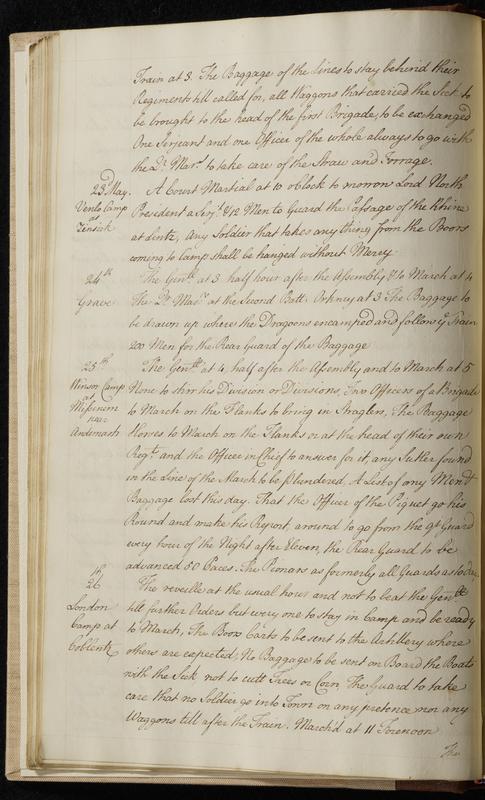 Train at 3. The Baggage of the lines to stay behind their
Regiments till called for, all Waggons that carried the Sick to
be brought to the head of the first Brigade, to be exchanged
One Serjeant and one Officer of the whole always to go with
the Dy. Marl. to take care of the Straw and Forrage.
23d. May.
Venlo Camp
at
Sinsick
A Court Martial at 10 oClock to morrow Lord North
President a Serjt. & 12 Men to Guard the Passage of the Rhine
at Lentz, Any Soldier that takes any thing from the Boors
coming to Camp shall be hanged without Mercy.
24th
Grave
The Genll. at 3 half hour after the Assembly & to March at 4
The Dy. Marl. at the Second Batt: Orkney at 3 The Baggage to
be drawn up where the Dragoons encamped and follow ye. Train
200 Men for the Rear Guard of the Baggage
25th
Winsor Camp
at
near
Andernach
The Genll. at 4, half after the Assembly and to March at 5
None to stir his Division or Divisions, Two Officers of a Brigade
to March on the Flanks to bring in Straglers, The Baggage
Horses to March on the Flanks or at the head of their own
Regts. and the Officer in Chief to answer for it, any Sutler found
in the Line of the March to be plundered, A List of any Men &
Baggage lost this day. That the Officer of the Piquet go his
Round and make his Report, around to go from the Qr. Guard
every hour of the Night after Eleven, the Rear Guard to be
advanced 50 Paces. The Pionars as formerly all Guards as to day
26th
London
Camp at
Coblentz
The reveille at the usual hour and not to beat the Genll.
till further Orders but every one to stay in Camp and be ready
to March, The Boors Carts to be sent to the Artillery where
others are expected, No Baggage to be sent on Board the Boats
with the Sick not to cutt Trees or Corn, The Guard to take
care that no Soldier go into Town on any pretence nor any
Waggons till after the Train. March'd at 11 Forenoon
The